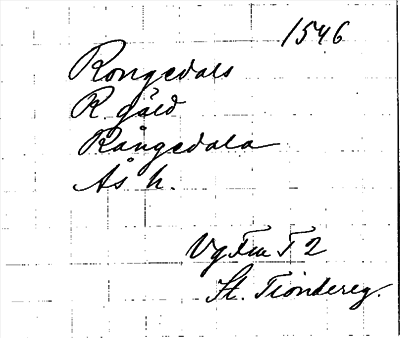 1546
Rongedals
R gäld
Rångedala
Ås h.
Vg Fru T 2
St. Tiondereg.